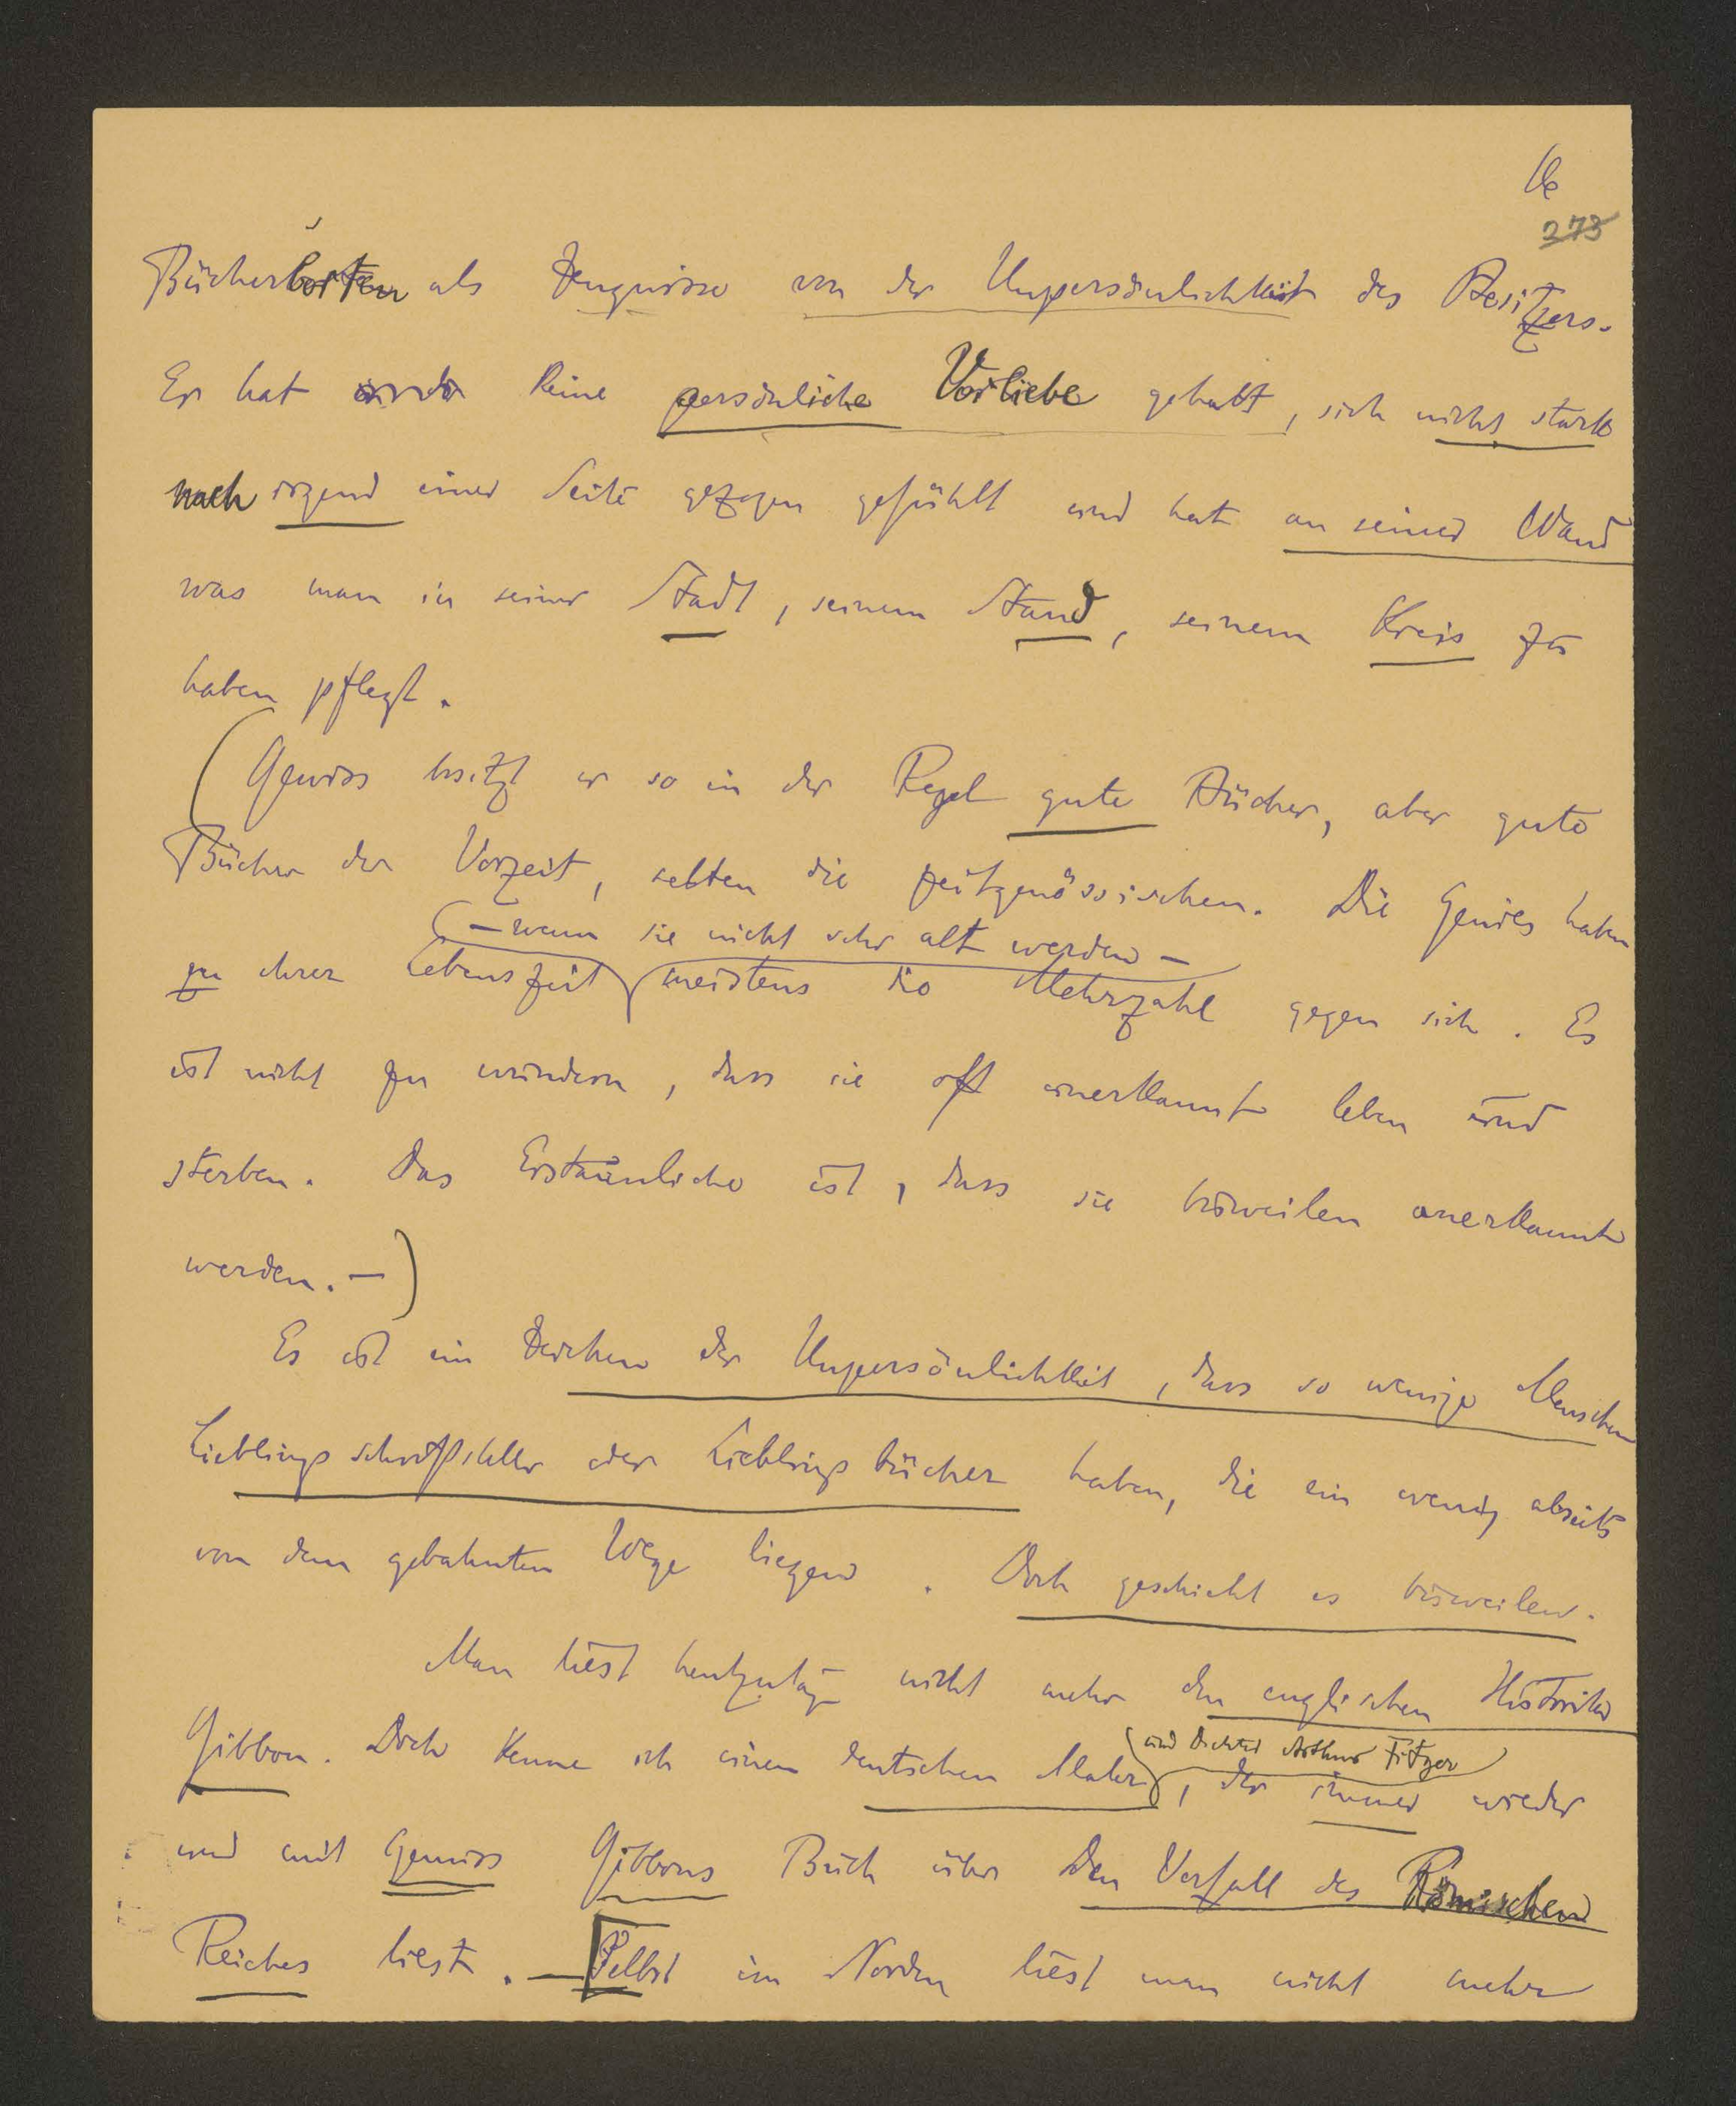 273
Bücherborten als Zeugnisse von der Unpersönlichkeit des Besitzers.
Er hat keine persönliche Vorliebe gehabt, sich nicht stark
nach irgend einer Seite gezogen gefühlt und hat an seiner Wand
was man in seiner Stadt, seinem Stand, seinem Kreis zu
haben pflegt.
(Gewiss besitzt er so in der Regel gute Bücher, aber gute
Bücher der Vorzeit, selten die zeitgenössischen. Die Genies haben
– wenn sie nicht sehr alt werden –
zu ihrer Lebenszeit meistens die Mehrzahl gegen sich. Es
ist nicht zu wundern, dass sie oft unerkannt leben und
sterben. Das Erstaunliche ist, dass sie bisweilen anerkannt
werden. –)
Es ist ein Zeichen der Unpersönlichkeit, dass so wenige Menschen
Lieblingsschriftsteller oder Lieblingsbücher haben, die ein wenig abseits
von dem gebahnten Wege liegen. Doch geschieht es bisweilen.
Man liest heutzutage nicht mehr den englischen Historiker
und Dichter Arthur Fitger
Gibbon. Doch kenne ich einen deutschen Maler, der immer wieder
und mit Genuss Gibbons Buch über den Verfall des Römischen
Reiches liest. – [Selbst im Norden liest man nicht mehr